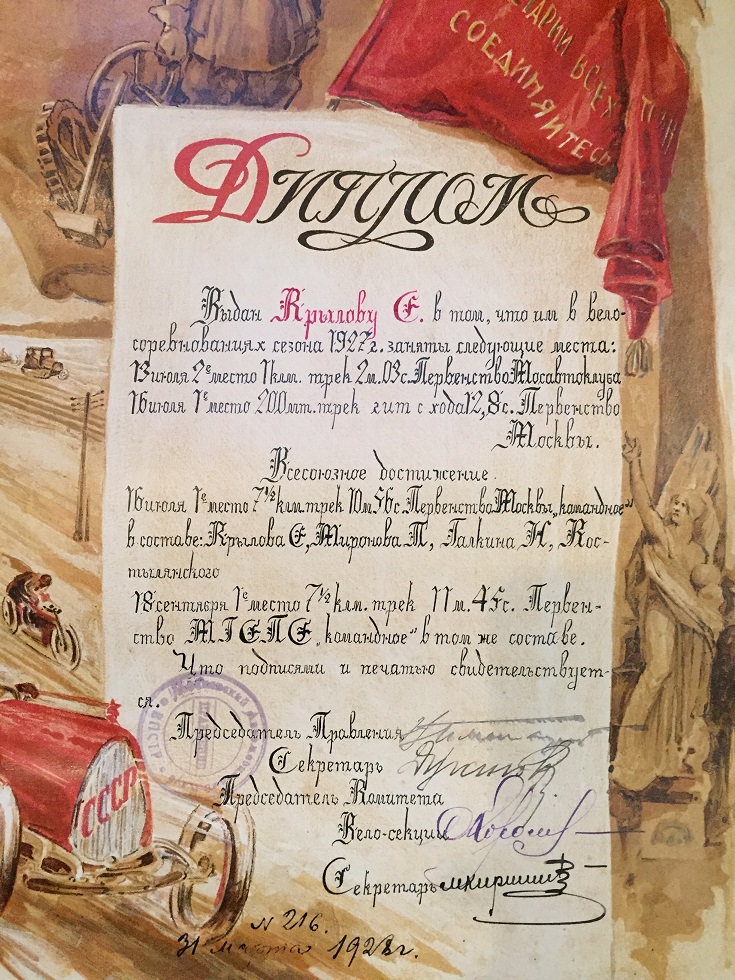 ТАРИИ ВСЕХ СТРАН
СОЕДИНЯЙТЕСЬ
Диплом
Выдан Крылову Е. в том, что им в вело-
соревнованиях сезона 1927г. заняты следующие места:
13 июля 2е место 1 клм. трек 2 м. 03 с. Первенство Мосавтоклуба
16 июля 1е место 200 мт. трек гит с хода 12,8 с. Первенство
Москвы.
Всесоюзное достижение.
16 июля 1е место 7½ клм. трек 10 м. 56 с. Первенство Москвы „командное"
в составе: Крылова Е, Миронова П, Галкина Н, Кос-
тылянского
18 сентября 1е место 7½ клм. трек 11 м. 45 с. Первен-
ство МГСПС „командное" в том же составе.
Что подписями и печатью свидетельствует-
ся.
Председатель Правления
Секретарь
Председатель Комитета
Вело-секции
Секретарь
СССР
N 216.
31 марта 1928 г.